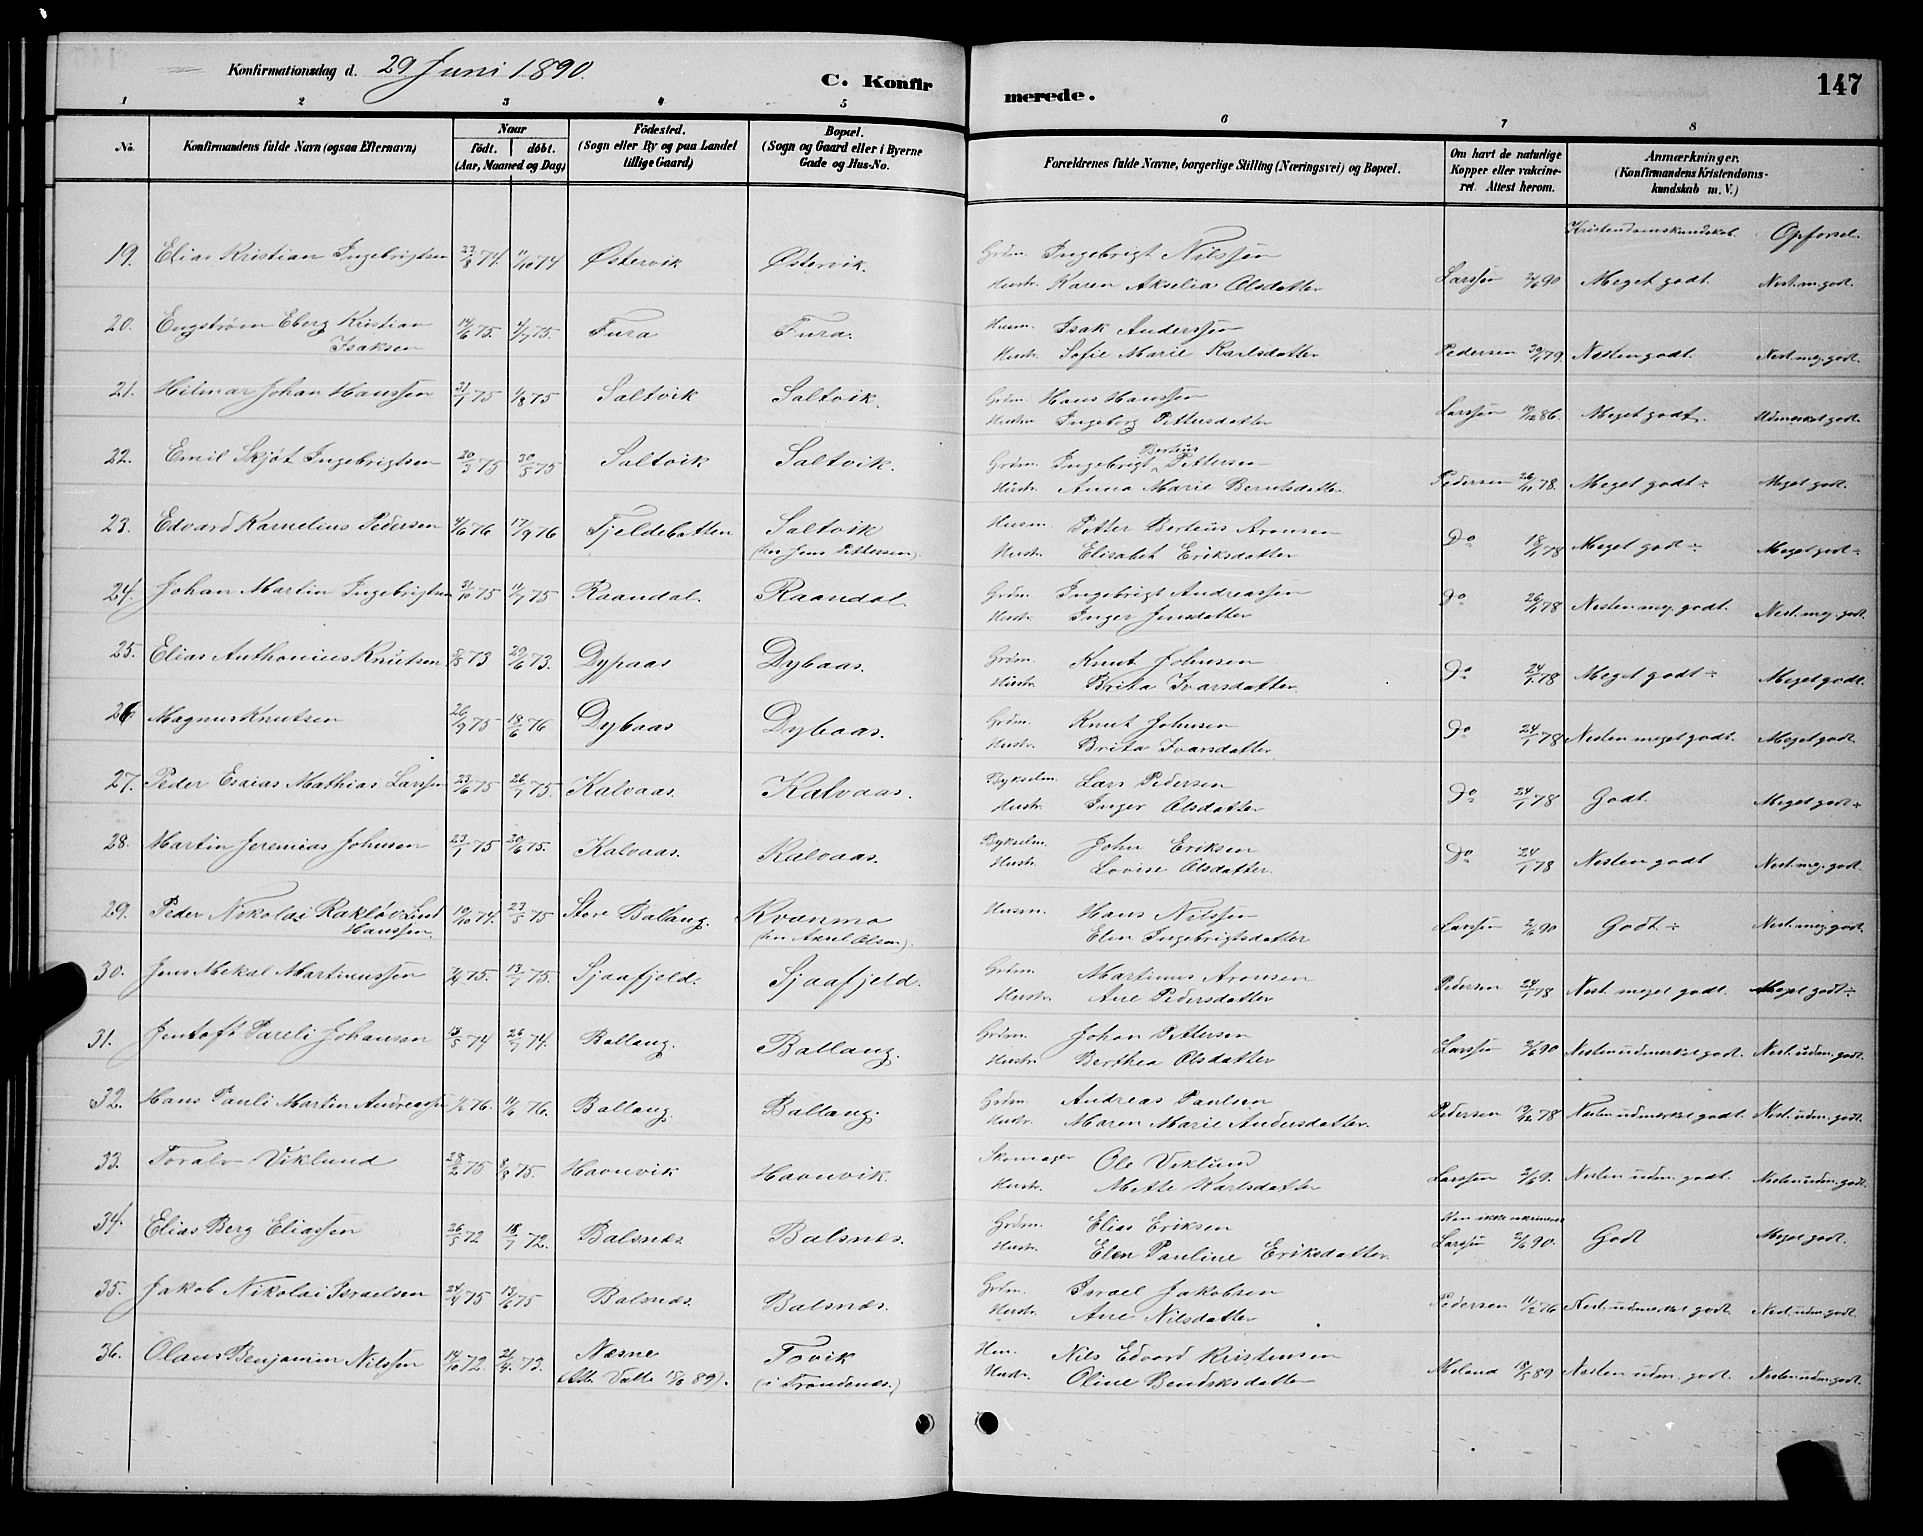 Konfirmationsdag d. 29 Juni 1890.
C. Konfirmerede.
147
1 2 3 4 5 6 7 8
No.
Konfirmandens fulde Navn (ogsaa Efternavn)
Naar
födt. döbt.
(Aar, Maaned og Dag)
Födested.
(Sogn eller By og paa Landet
tillige Gaard)
Bopæl.
(Sogn og Gaard eller i Byerne
Gade og Hus-No.
Forældrenes fulde Navne, borgerlige Stilling (Næringsvei) og Bopæl.
Om havt de naturlige
Kopper eller vakcine-
ret. Attest herom.
Anmærkninger.
(Konfirmandens Kristendoms-
kundskab m. V.)
Kristendomskundskab. Opførsel.
19. Elias Kristian Ingebrigtsen 23/8 74. 11/10 74 Østervik Østervik. Grdm. Ingebrigt Nilssen
Hustr. Karen Akselia Olsdatter Larssen 2/6 90 Meget godt. Nest. m. godt.
20. Engstrøm Eberg Kristian 14/6 75. 4/7 75. Fura Fura. Husm. Isak Anderssen
Isaksen Hustr. Sofie Marie Karlsdatter Pedersen 30/1 79 Nesten godt. Nest. meg. godt.
21. Hilmar Johan Hanssen 31/1 75 1/8 75 Saltvik Saltvik. Grdm. Hans Hanssen
Hustr. Ingeborg Pettersdatter Larssen 10/12 86. Meget godt. Udmerket godt.
22. Emil Skjøt Ingebrigtsen 20/3 75 30/5 75 Saltvik Saltvik. Grdm. Ingebrigt Berteus Pettersen
Hustr. Anna Marie Berntsdatter Pedersen 26/11 78. Meget godt ÷ Meget godt.
23. Edvard Karnelius Pedersen 4/6 76 17/9 76 Fjeldebotten Saltvik Husm. Petter Berteus Aronsen
(hos Jens Pettersen). Hustr. Elisabet Eriksdatter Do 18/1 78 Meget godt ÷ Meget godt ÷
24. Johan Martin Ingebrigtsen 31/10 75 11/7 75 Raandal. Raandal. Grdm. Ingebrigt Andreassen
Hustr. Inger Jensdatter Do 26/1 78 Nesten meg. godt. Nest. meg. godt.
25. Elias Anthonius Knutsen 5/5 73 29/6 73. Dypaas Dybaas. Grdm. Knut Johnsen
Hustr. Brita Ivarsdatter. Do 24/1 78 Meget godt ÷ Meget godt.
26 Magnus Knutsen 26/9 75 18/6 76 Dybaas Dybaas. Grdm. Knut Johnsen
Hustr. Brita Ivarsdatter. Do 24/1 78 Nesten meget godt. Meget godt.
27. Peder Esaias Mathias Larssen 23/6 75 26/7 75. Kalvaas. Kalvaas. Bykselm. Lars Pedersen
Hustr. Inger Olsdatter Do 24/1 78 Godt. Meget godt ÷
28. Martin Jeremias Johnsen 23/1 75 20/6 75. Kalvaas. Kalvaas. Bykselm. John Eriksen
Hustr. Lovise Olsdatter. Do 24/1 78 Nesten godt Nest. meg. godt.
29. Peder Nikolai Rakløv Lind 10/10 74. 23/5 75 Store Ballang. Kvanmo Husm. Hans Nilssen
Hanssen. (hos Aksel Olsen). Elen Ingebrigtsdatter Larssen 2/6 90 Godt ÷ Nest. meg. godt.
30. Jens Mekal Martinussen 2/4 75. 13/7 75. Sjaafjeld. Sjaafjeld. Grdm. Martinus Aronsen
Hustr. Ane Pedersdatter Pedersen 24/1 78 Nest. meget godt. Meget godt ÷
31. Jentoft Pareli Johansen 13/5 74 26/7 74. Ballang. Ballang. Grdm. Johan Pettersen
Hustr. Berthea Olsdatter Larssen 2/6 90 Nesten udmerket godt. Nest. udm. godt.
32. Hans Pauli Martin Andreassen 1/2 76. 11/6 76. Ballang. Ballang. Grdm. Andreas Paulsen
Hustr. Maren Marie Andersdatter. Pedersen 19/12 78 Nesten udmerket godt. Nest. udm. godt.
33. Toralv Viklund 28/2 75 8/8 75. Havnvik Havnvik. Skomager Ole Viklund
Hustr. Mette Karlsdatter Larssen 2/6 9. Nesten udm. godt. Nesten udm. godt.
34. Elias Berg Eliassen 26/5 72 18/7 72. Balsnes. Balsnes. Grdm. Elias Eriksen
Hustr. Elen Pauline Eriksdatter. Larssen 2/6 90. Godt Meget godt.
35. Jakob Nikolai Israelsen 24/4 75 13/6 75 Balsnes. Balsnes. Grdm. Israel Jakobsen
Hustr. Ane Nilsdatter Pedersen 11/2 76 Nest. udmerket godt. Nest. udm. godt.
36. Olaus Benjamin Nilssen 14/10 72. 21/4 73. Nesne Tovik Nils Edvard Kristensen
(i Trondenes.) Hustr. Oline Bendiksdatter Meland 19/5 89 Nesten udm. godt. Nesten udm. godt.